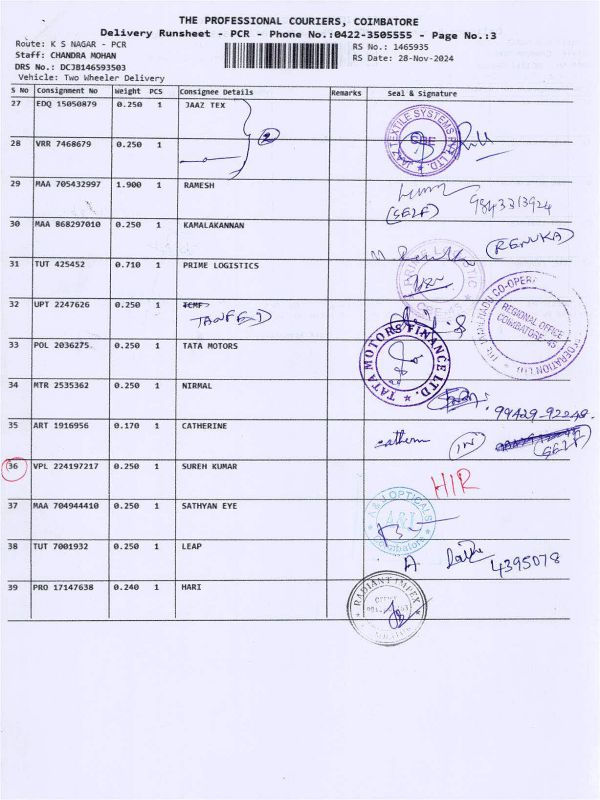 THE PROFESSIONAL COURIERS, COIMBATORE
Delivery Runsheet - PCR - Phone No.:0422-3505555 - Page No.:3
Route: K S NAGAR - PCR
RS No.: 1465935
Staff: CHANDRA MOHAN
RS Date: 28-Nov-2024
DRS No.: DCJB146593503
Vehicle: Two Wheeler Delivery
S No Consignment No Weight PCS Consignee Details Remarks Seal & Signature
27 EDQ 15050879 0.250 1 JAAZ TEX
JAAZ TEXTILE SYSTEMS PVT. LTD.
CBE
2
28 VRR 7468679 0.250 1
29 MAA 705432997 1.900 1 RAMESH
(SELF) 9843313924
30 MAA 868297010 0.250 1 KAMALAKANNAN
M Renuka (RENUKA)
31 TUT 425452 0.710 1 PRIME LOGISTICS
32 UPT 2247626 0.250 1 TCMF
TANFED
REGIONAL OFFICE
COIMBATORE-45
33 POL 2036275 0.250 1 TATA MOTORS
TATA MOTORS FINANCE LTD.
34 MTR 2535362 0.250 1 NIRMAL
99429-92248.
35 ART 1916956 0.170 1 CATHERINE
(IN) (SELF)
36 VPL 224197217 0.250 1 SUREH KUMAR
HIR
37 MAA 704944410 0.250 1 SATHYAN EYE
A & J OPTICALS
A & J
Coimbatore
38 TUT 7001932 0.250 1 LEAP
A 4395078
39 PRO 17147638 0.240 1 HARI
RADIANT IMPEX
OFFICE